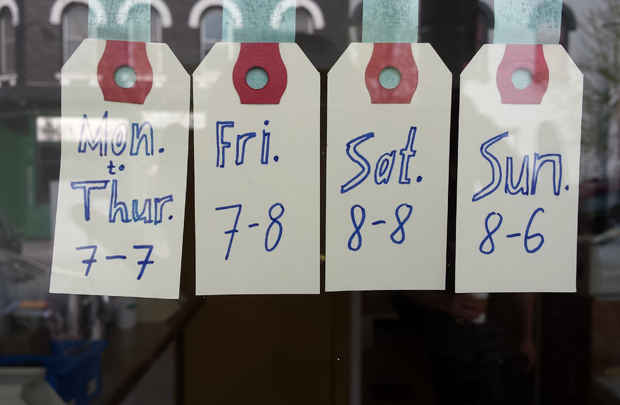 Mon.
to
Thur.
7-7
Fri.
7-8
Sat.
8-8
Sun.
8-6